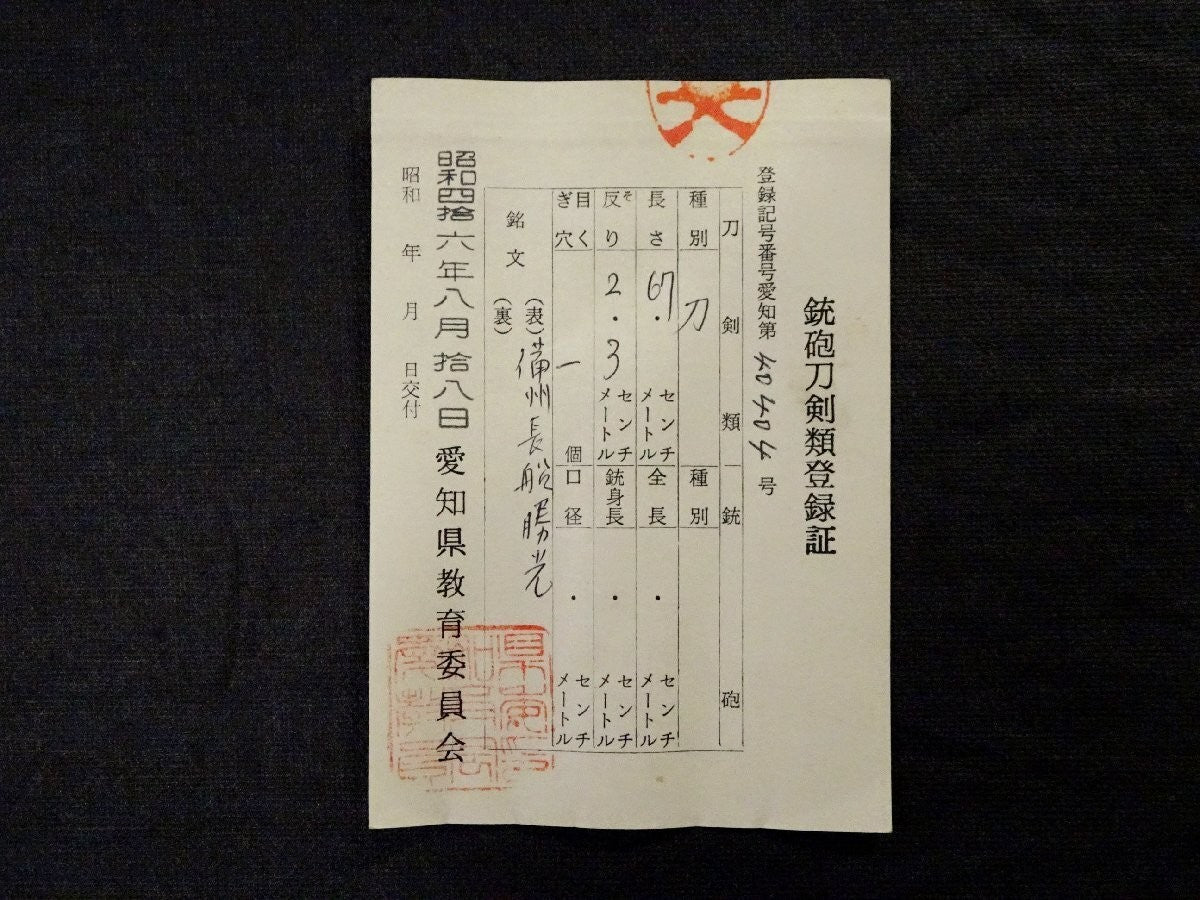 文
銃砲刀剣類登録証
登録記号番号愛知第 40404 号
刀剣類 銃砲
種別 刀 種別
長さ 67. センチメートル 全長 . センチメートル
反り そ 2.3 センチメートル 銃身長 . センチメートル
目くぎ穴 一 個 口径 . センチメートル
銘文 (表) 備州長船勝光
(裏)
昭和四拾六年八月拾八日 愛知県教育委員会
昭和 年 月 日交付